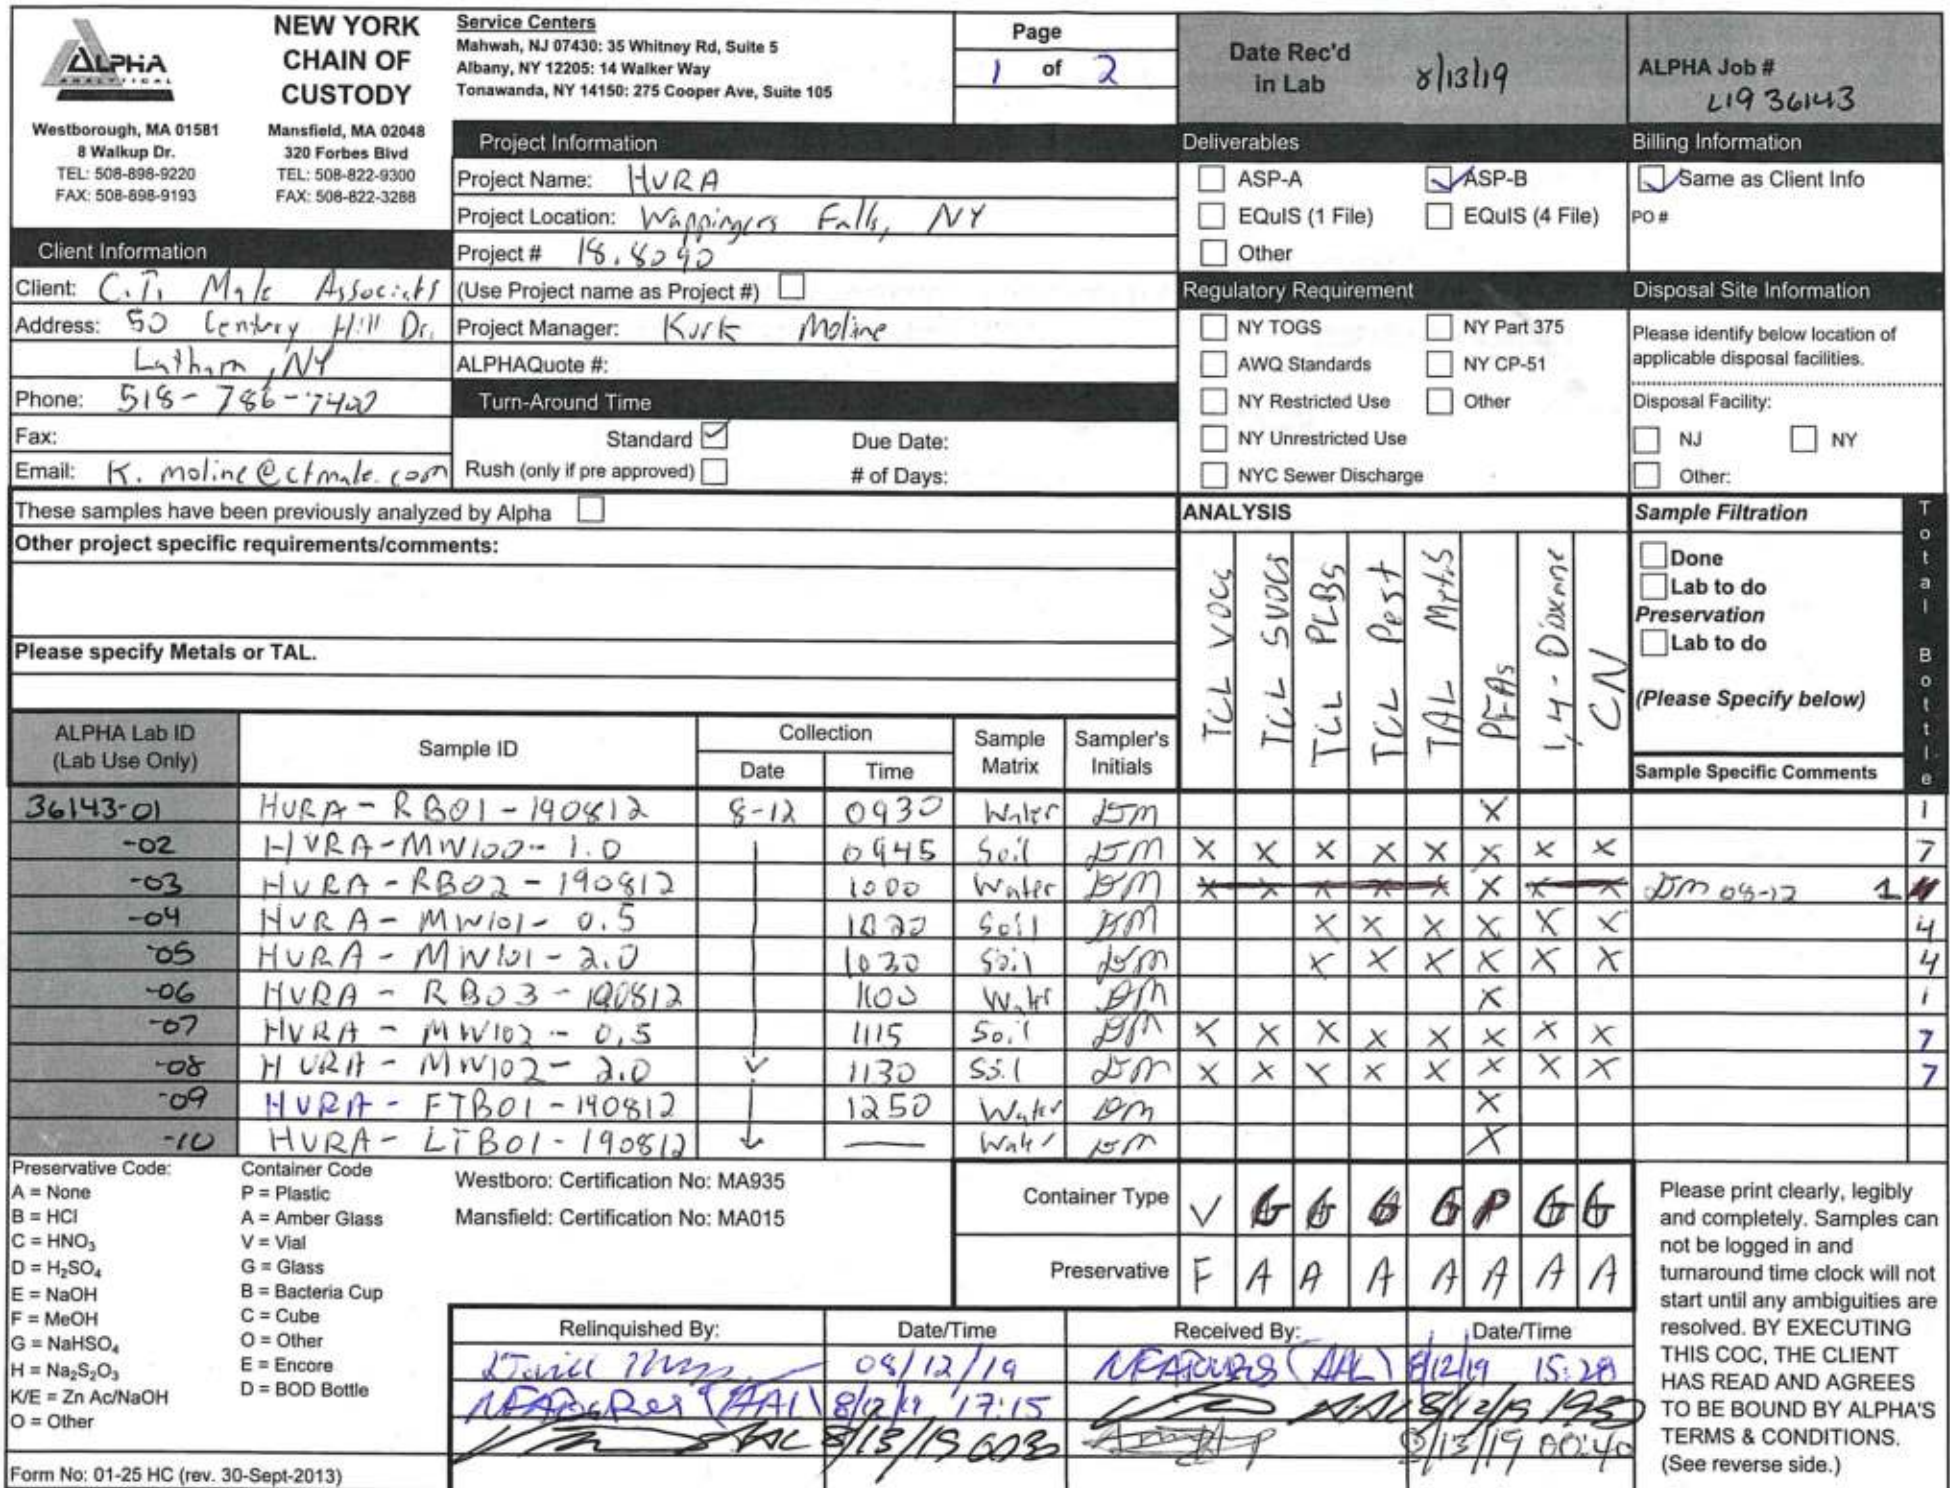 ALPHA
ANALYTICAL
NEW YORK
CHAIN OF
CUSTODY
Westborough, MA 01581
8 Walkup Dr.
TEL: 508-898-9220
FAX: 508-898-9193
Mansfield, MA 02048
320 Forbes Blvd
TEL: 508-822-9300
FAX: 508-822-3288
Service Centers
Mahwah, NJ 07430: 35 Whitney Rd, Suite 5
Albany, NY 12205: 14 Walker Way
Tonawanda, NY 14150: 275 Cooper Ave, Suite 105
Page
1 of 2
Date Rec'd
in Lab
8/13/19
ALPHA Job #
L1936143
Project Information
Project Name: HVRA
Project Location: Wappingers Falls, NY
Project # 18.8090
(Use Project name as Project #)
Project Manager: Kirk Moline
ALPHAQuote #:
Turn-Around Time
Standard
Due Date:
Rush (only if pre approved)
# of Days:
Client Information
Client: C.T. Male Associates
Address: 50 Century Hill Dr.
Latham, NY
Phone: 518-786-7400
Fax:
Email: K.moline@ctmale.com
Deliverables
ASP-A
ASP-B
EQuIS (1 File)
EQuIS (4 File)
Other
Regulatory Requirement
NY TOGS
NY Part 375
AWQ Standards
NY CP-51
NY Restricted Use
Other
NY Unrestricted Use
NYC Sewer Discharge
Billing Information
Same as Client Info
PO #
Disposal Site Information
Please identify below location of
applicable disposal facilities.
Disposal Facility:
NJ
NY
Other:
These samples have been previously analyzed by Alpha
Other project specific requirements/comments:
Please specify Metals or TAL.
ANALYSIS
TCL VOCs
TCL SVOCs
TCL PCBs
TCL Pest
TAL Metals
PFAs
1,4-Dioxane
CN
Sample Filtration
Done
Lab to do
Preservation
Lab to do
(Please Specify below)
Sample Specific Comments
Total Bottle
ALPHA Lab ID
(Lab Use Only)
Sample ID
Collection
Date
Time
Sample
Matrix
Sampler's
Initials
36143-01 HVRA-RB01-190812 8-12 0930 Water DM X 1
-02 HVRA-MW100-1.0 0945 Soil DM X X X X X X X X 7
-03 HVRA-RB02-190812 1000 Water DM X X X X X X X X DM 08-12 1
-04 HVRA-MW101-0.5 1020 Soil DM X X X X X X 4
-05 HVRA-MW101-2.0 1030 Soil DM X X X X X X 4
-06 HVRA-RB03-190812 1100 Water DM X 1
-07 HVRA-MW102-0.5 1115 Soil DM X X X X X X X X 7
-08 HVRA-MW102-2.0 1130 Soil DM X X X X X X X X 7
-09 HVRA-FTB01-190812 1250 Water DM X
-10 HVRA-LTB01-190812 — Water DM X
Preservative Code:
A = None
B = HCl
C = HNO3
D = H2SO4
E = NaOH
F = MeOH
G = NaHSO4
H = Na2S2O3
K/E = Zn Ac/NaOH
O = Other
Container Code
P = Plastic
A = Amber Glass
V = Vial
G = Glass
B = Bacteria Cup
C = Cube
O = Other
E = Encore
D = BOD Bottle
Westboro: Certification No: MA935
Mansfield: Certification No: MA015
Container Type V G G G G P G G
Preservative F A A A A A A A
Relinquished By:
Date/Time
Received By:
Date/Time
08/12/19
(AAL) 8/12/19 15:28
(AAL) 8/12/19 17:15
AAL 8/12/19
AAL 8/13/19
8/13/19 00:40
Please print clearly, legibly
and completely. Samples can
not be logged in and
turnaround time clock will not
start until any ambiguities are
resolved. BY EXECUTING
THIS COC, THE CLIENT
HAS READ AND AGREES
TO BE BOUND BY ALPHA'S
TERMS & CONDITIONS.
(See reverse side.)
Form No: 01-25 HC (rev. 30-Sept-2013)